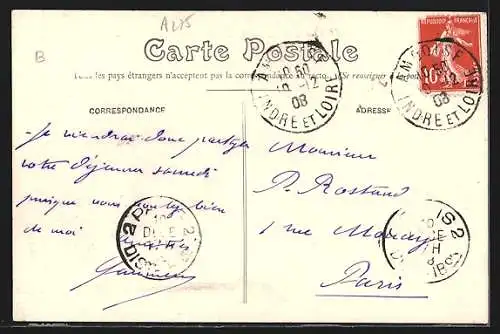 A275
B
Carte Postale
Tous les pays étrangers n'acceptent pas la correspondance au recto. (Se renseigner à la poste)
CORRESPONDANCE
ADRESSE
REPUBLIQUE FRANÇAISE
10
AMBOISE
12
08
INDRE ET LOIRE
AMBOISE
12
08
INDRE ET LOIRE
Je viendrai donc partager
votre déjeuner samedi
puisque vous voulez bien
de moi
Monsieur
P. Rostand
1 rue
Paris
PARIS 2
DISTRIB